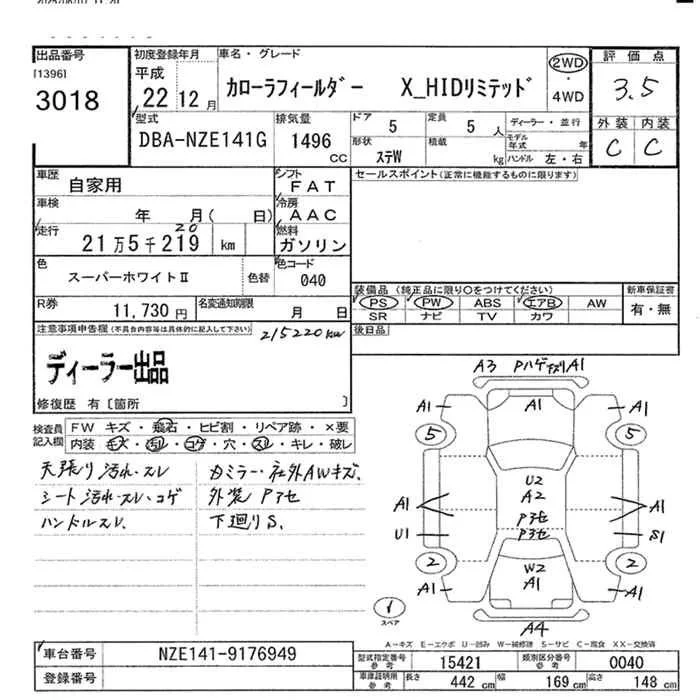 出品番号 初度登録年月 車名・グレード 評価点
[1396] 平成 2WD
3018 22 12月 カローラフィールダー X_HIDリミテッド 4WD 3.5
型式 排気量 ドア 定員 ディーラー・並行 外装 内装
DBA-NZE141G 1496 CC 5 5人 モデル年式 年 C C
形状 積載
ステW kg ハンドル 左・右
車歴 自家用 シフト FAT セールスポイント(正常に機能するものに限ります)
車検 年 月( 日) 冷房 AAC
走行 21万5千219 km 20 燃料 ガソリン
色 スーパーホワイトⅡ 色替 色コード 040
装備品(純正品に限り○をつけてください) 新車保証書
PS PW ABS エアB AW 有・無
SR ナビ TV カワ
R券 11,730円 名変通知期限 月 日
後日品
注意事項申告欄(不具合内容等は具体的に記入して下さい) 215220km
ディーラー出品
修復歴 有〔箇所 〕
検査員記入欄 FW キズ・飛石・ヒビ割・リペア跡・×要
内装 キズ・汚れ・コゲ・穴・スレ・キレ・破レ
天張り汚れ・スレ
シート汚れ・スレ・コゲ
ハンドルスレ
カミラー・社外AWキズ.
外装Pアセ
下廻りS.
A3 Pハゲ A1
A1 A1 A1
5 5
U2
A2
A1 Pアセ A1
U1 Pアセ S1
2 W2 2
A1 A1 A1
スペア
A4
A-キズ E-エクボ U-凹み W-補修跡 S-サビ C-腐食 XX-交換済
車台番号 NZE141-9176949
登録番号
型式指定番号 参考 15421 類別区分番号 参考 0040
車庫証明用 参考 長さ 442cm 幅 169cm 高さ 148cm